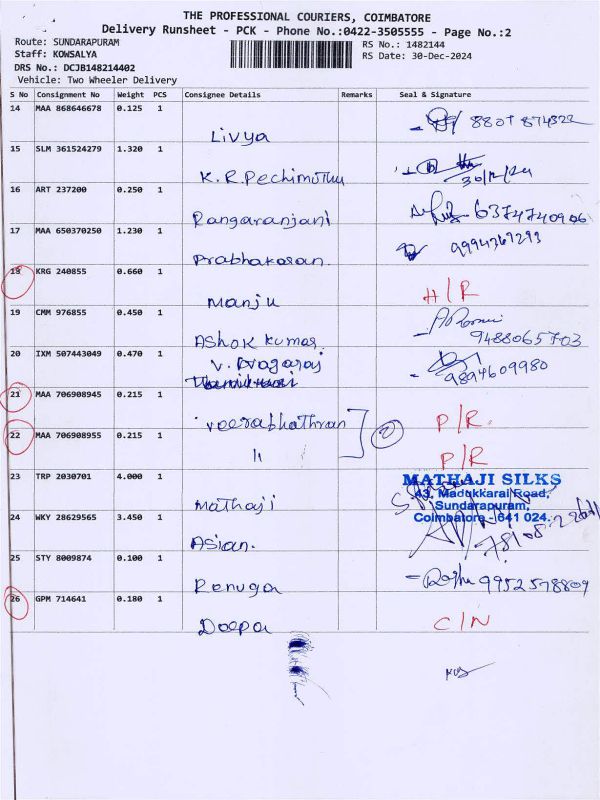 THE PROFESSIONAL COURIERS, COIMBATORE
Delivery Runsheet - PCK - Phone No.:0422-3505555 - Page No.:2
Route: SUNDARAPURAM
RS No.: 1482144
Staff: KOWSALYA
RS Date: 30-Dec-2024
DRS No.: DCJB148214402
Vehicle: Two Wheeler Delivery
S No Consignment No Weight PCS Consignee Details Remarks Seal & Signature
14 MAA 868646678 0.125 1
Livya
15 SLM 361524279 1.320 1
K.R.Pechimuthu
30/12/24
16 ART 237200 0.250 1
Rangaranjani 6374740906
17 MAA 650370250 1.230 1
Prabhakaran 9994367293
18 KRG 240855 0.660 1
Manju H/R
19 CMM 976855 0.450 1
Ashok Kumar 9488065703
20 IXM 507443049 0.470 1
9894609980
21 MAA 706908945 0.215 1
Veerabhathran P/R
2
22 MAA 706908955 0.215 1
" P/R
23 TRP 2030701 4.000 1
Mathaji
MATHAJI SILKS
43, Madukkarai Road,
Sundarapuram,
Coimbatore - 641 024.
24 WKY 28629565 3.450 1
Asian.
25 STY 8009874 0.100 1
Renuga 9952578809
26 GPM 714641 0.180 1
Deepa C/N